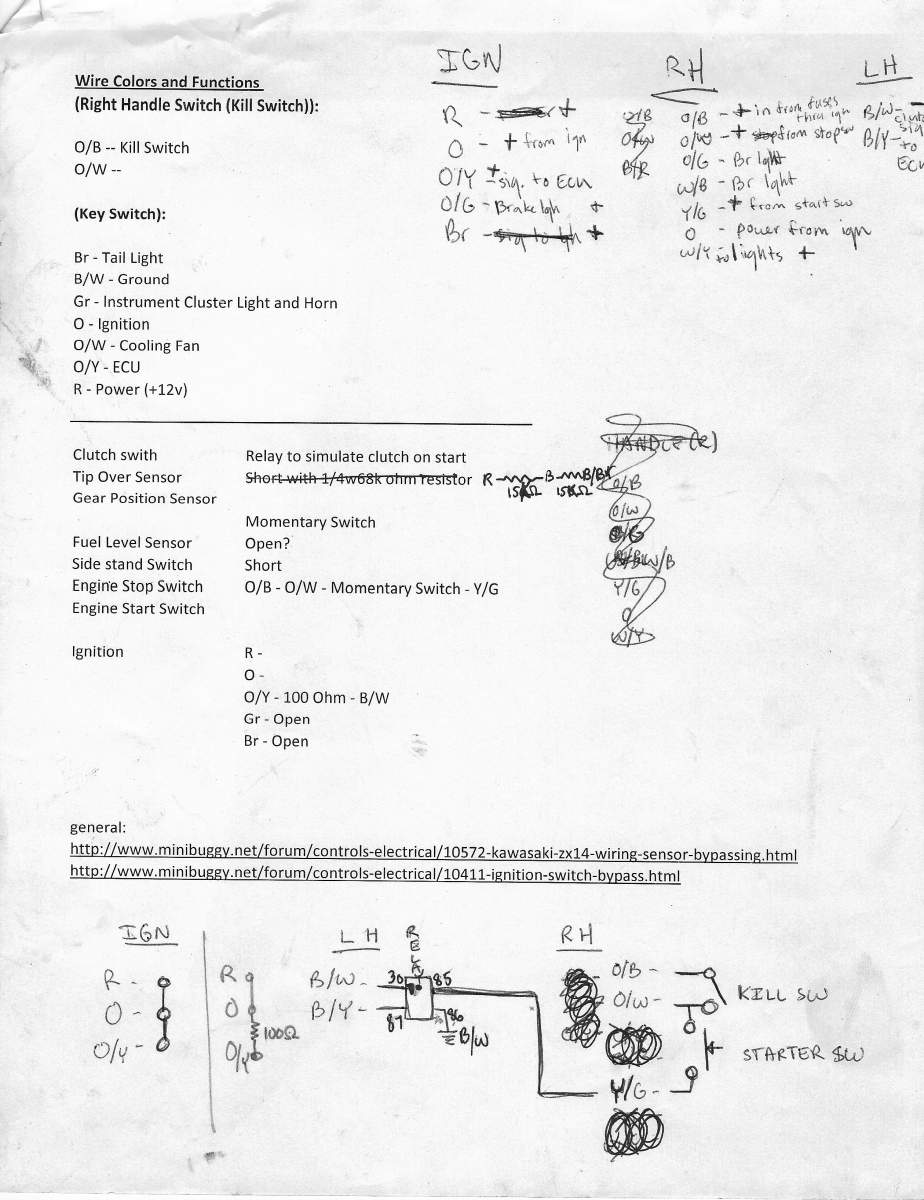 IGN
R - +
O - + from ign
O/Y - + sig. to ECU
O/G - Brake ligh +
Br - +
O/B
O/W
B/R
RH
O/B - + in from fuses thru ign
O/W - + from stop sw
O/G - Br light
W/B - Br light
Y/G - + from start sw
O - power from ign
W/Y - to lights +
LH
B/W -
B/Y - sig to ECU
Wire Colors and Functions
(Right Handle Switch (Kill Switch)):
O/B -- Kill Switch
O/W --
(Key Switch):
Br - Tail Light
B/W - Ground
Gr - Instrument Cluster Light and Horn
O - Ignition
O/W - Cooling Fan
O/Y - ECU
R - Power (+12v)
Clutch swith Relay to simulate clutch on start
Tip Over Sensor Short with 1/4w68k ohm resistor R - B - B/Br
15KΩ 15KΩ
Gear Position Sensor
Momentary Switch
Fuel Level Sensor Open?
Side stand Switch Short
Engine Stop Switch O/B - O/W - Momentary Switch - Y/G
Engine Start Switch
Ignition R -
O -
O/Y - 100 Ohm - B/W
Gr - Open
Br - Open
HANDLE (R)
O/B
O/W
O/G
W/B
Y/G
O
W/Y
general:
http://www.minibuggy.net/forum/controls-electrical/10572-kawasaki-zx14-wiring-sensor-bypassing.html
http://www.minibuggy.net/forum/controls-electrical/10411-ignition-switch-bypass.html
IGN
R -
O -
O/Y -
R
O
100Ω
O/Y
LH
B/W -
B/Y -
RELAY
30 85
87 86
B/W
RH
O/B -
O/W -
KILL SW
STARTER SW
Y/G -